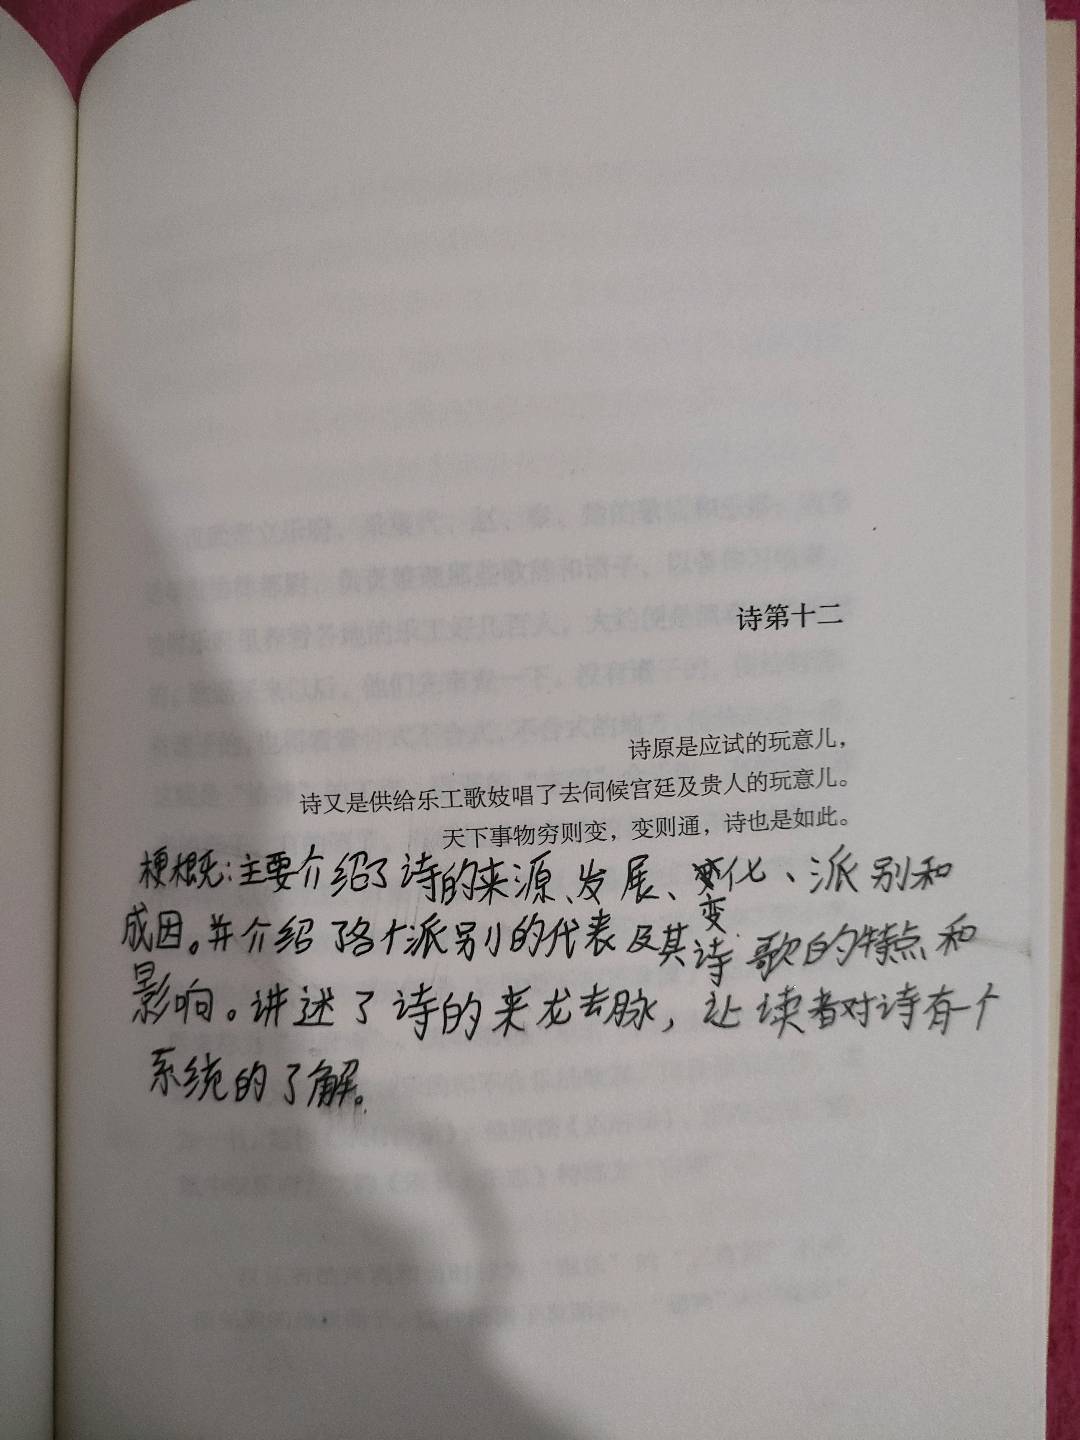 诗第十二
诗原是应试的玩意儿，
诗又是供给乐工歌妓唱了去伺候宫廷及贵人的玩意儿。
天下事物穷则变，变则通，诗也是如此。
梗概：主要介绍了诗的来源、发展、变化、派别和
成因。并介绍了各个派别的代表及其诗歌的特点和
影响。讲述了诗的来龙去脉，让读者对诗有一个
系统的了解。